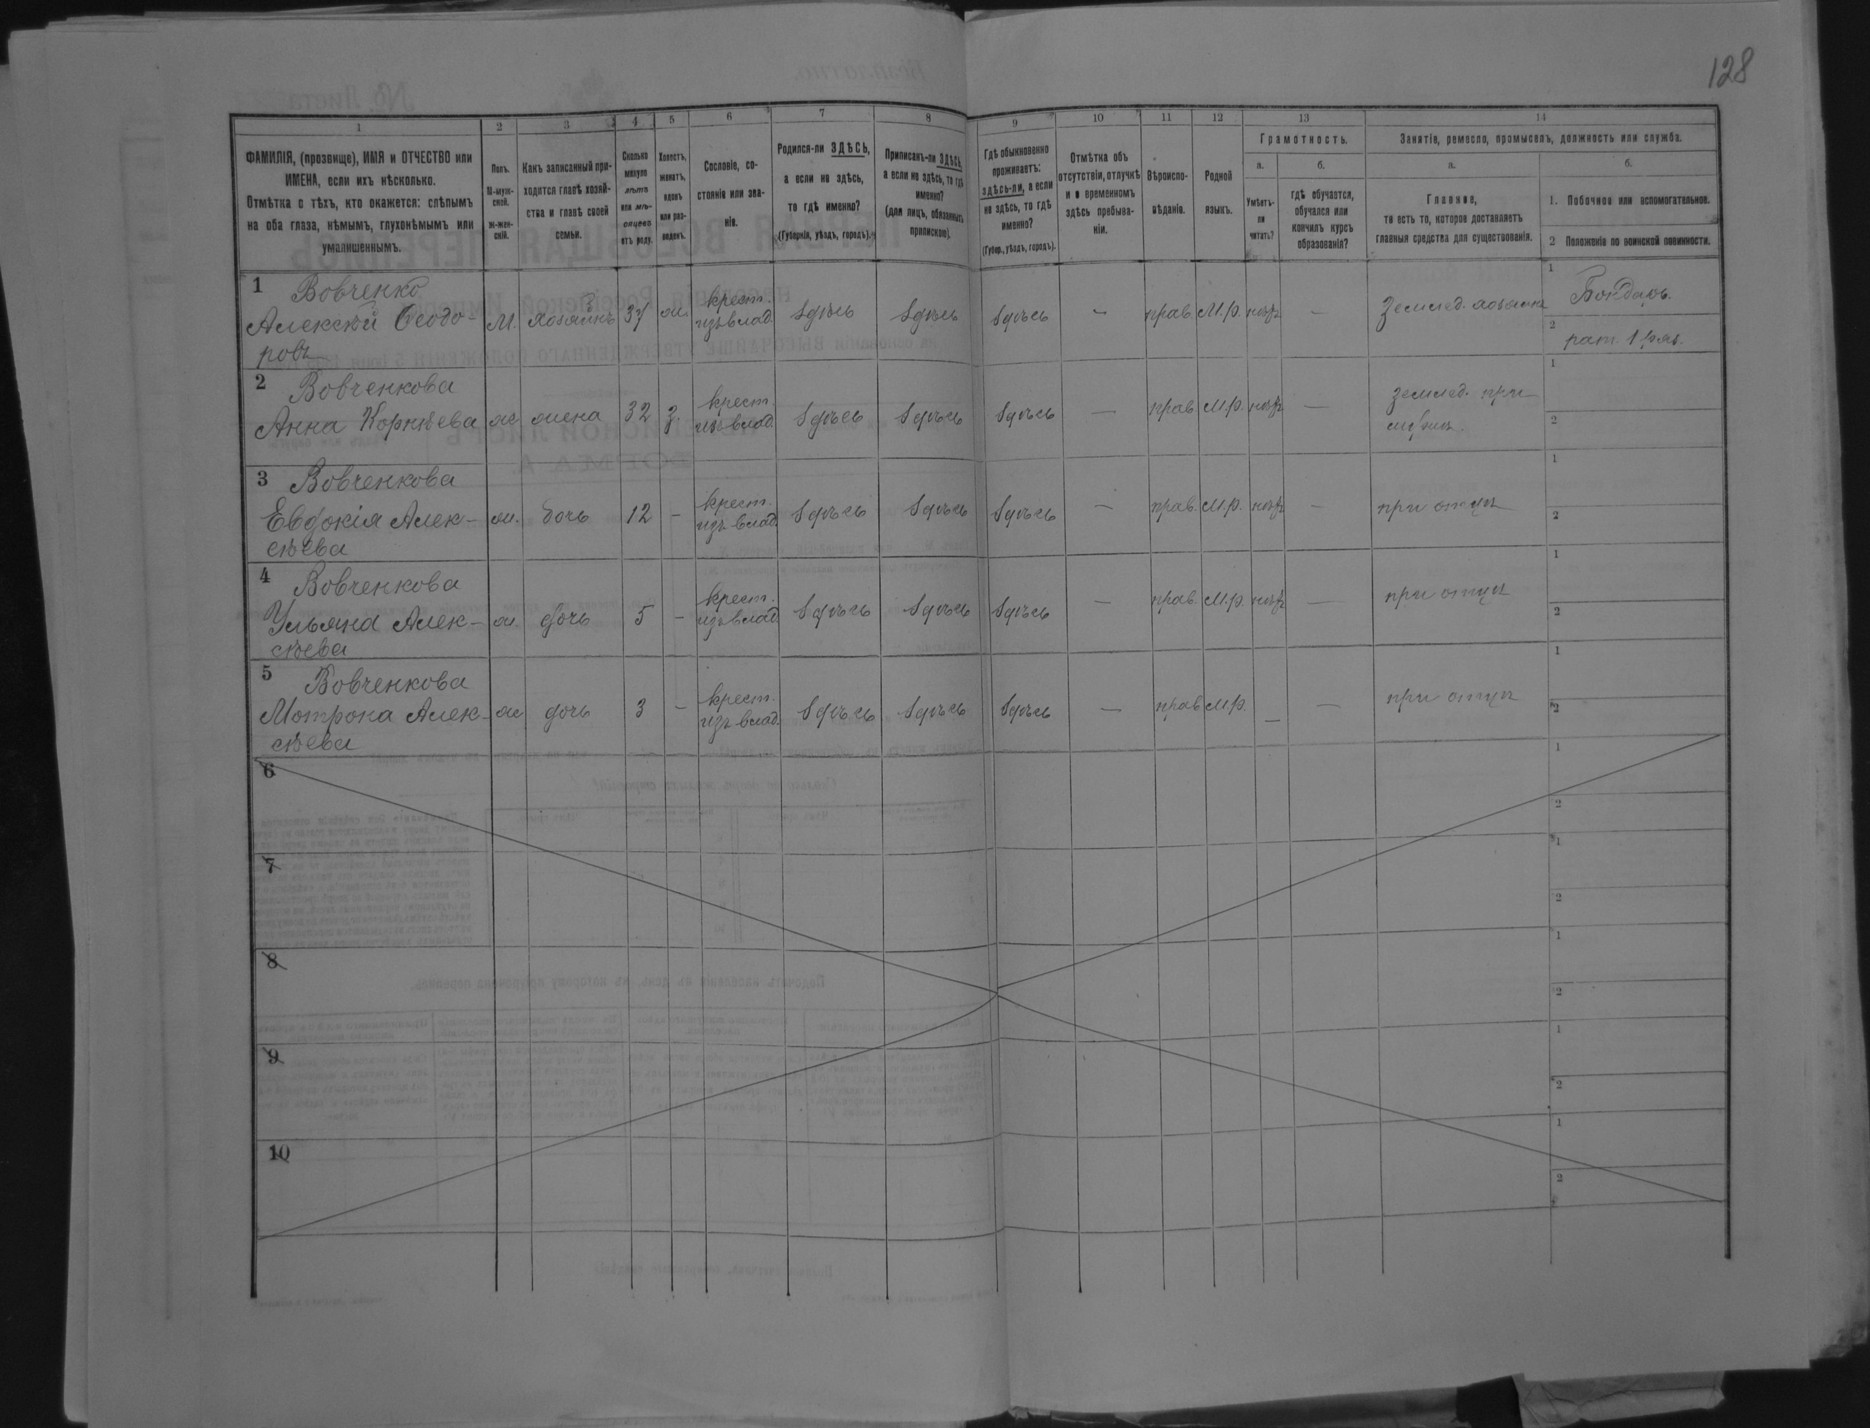 128
1
2
3
4
5
6
7
8
9
10
11
12
13
14
ФАМИЛІЯ, (прозвище), ИМЯ и ОТЧЕСТВО или
ИМЕНА, если ихъ нѣсколько.
Отмѣтка о тѣхъ, кто окажется: слѣпымъ
на оба глаза, нѣмымъ, глухонѣмымъ или
умалишеннымъ.
Полъ.
М-муж-
ской.
Ж-жен-
скій.
Какъ записанный при-
ходится главѣ хозяй-
ства и главѣ своей
семьи.
Сколько
минуло
лѣтъ
или мѣ-
сяцевъ
отъ роду.
Холостъ,
женатъ,
вдовъ
или раз-
веденъ.
Сословіе, со-
стояніе или зва-
ніе.
Родился-ли ЗДѢСЬ,
а если не здѣсь,
то гдѣ именно?
(Губернія, уѣздъ, городъ).
Приписанъ-ли ЗДѢСЬ,
а если не здѣсь, то гдѣ
именно?
(для лицъ, обязанныхъ
припискою).
Гдѣ обыкновенно
проживаетъ:
здѣсь-ли, а если
не здѣсь, то гдѣ
именно?
(Губер., уѣздъ, городъ).
Отмѣтка объ
отсутствіи, отлучкѣ
и о временномъ
здѣсь пребыва-
ніи.
Вѣроиспо-
вѣданіе.
Родной
языкъ.
Грамотность.
а.
Умѣетъ-
ли
читать?
б.
гдѣ обучается,
обучался или
кончилъ курсъ
образованія?
Занятіе, ремесло, промыселъ, должность или служба.
а.
Главное,
то есть то, которое доставляетъ
главныя средства для существованія.
б.
1. Побочное или вспомогательное.
2 Положеніе по воинской повинности.
1 Вовченко
Алексѣй Ѳеодо-
ровъ
М. хозяинъ 37 ж. крест. изъ влад. здѣсь здѣсь здѣсь — прав. М.р. нѣтъ — Землед. хозяинъ
1 Бондарь.
2 рат. 1 раз.
2 Вовченкова
Анна Корнѣева ж жена 32 з. крест. изъ влад. здѣсь здѣсь здѣсь — прав. М.р. нѣтъ — землед. при
мужѣ.
1
2
3 Вовченкова
Евдокія Алек-
сѣева
ж. дочь 12 — крест. изъ влад. здѣсь здѣсь здѣсь — прав. М.р. нѣтъ — при отцѣ
1
2
4 Вовченкова
Ульяна Алек-
сѣева
ж дочь 5 — крест. изъ влад. здѣсь здѣсь здѣсь — прав. М.р. нѣтъ — при отцѣ
1
2
5 Вовченкова
Мотрона Алек-
сѣева
ж дочь 3 — крест. изъ влад. здѣсь здѣсь здѣсь — прав. М.р. — — при отцѣ
1
2
6
1
2
7
1
2
8
1
2
9
1
2
10
1
2